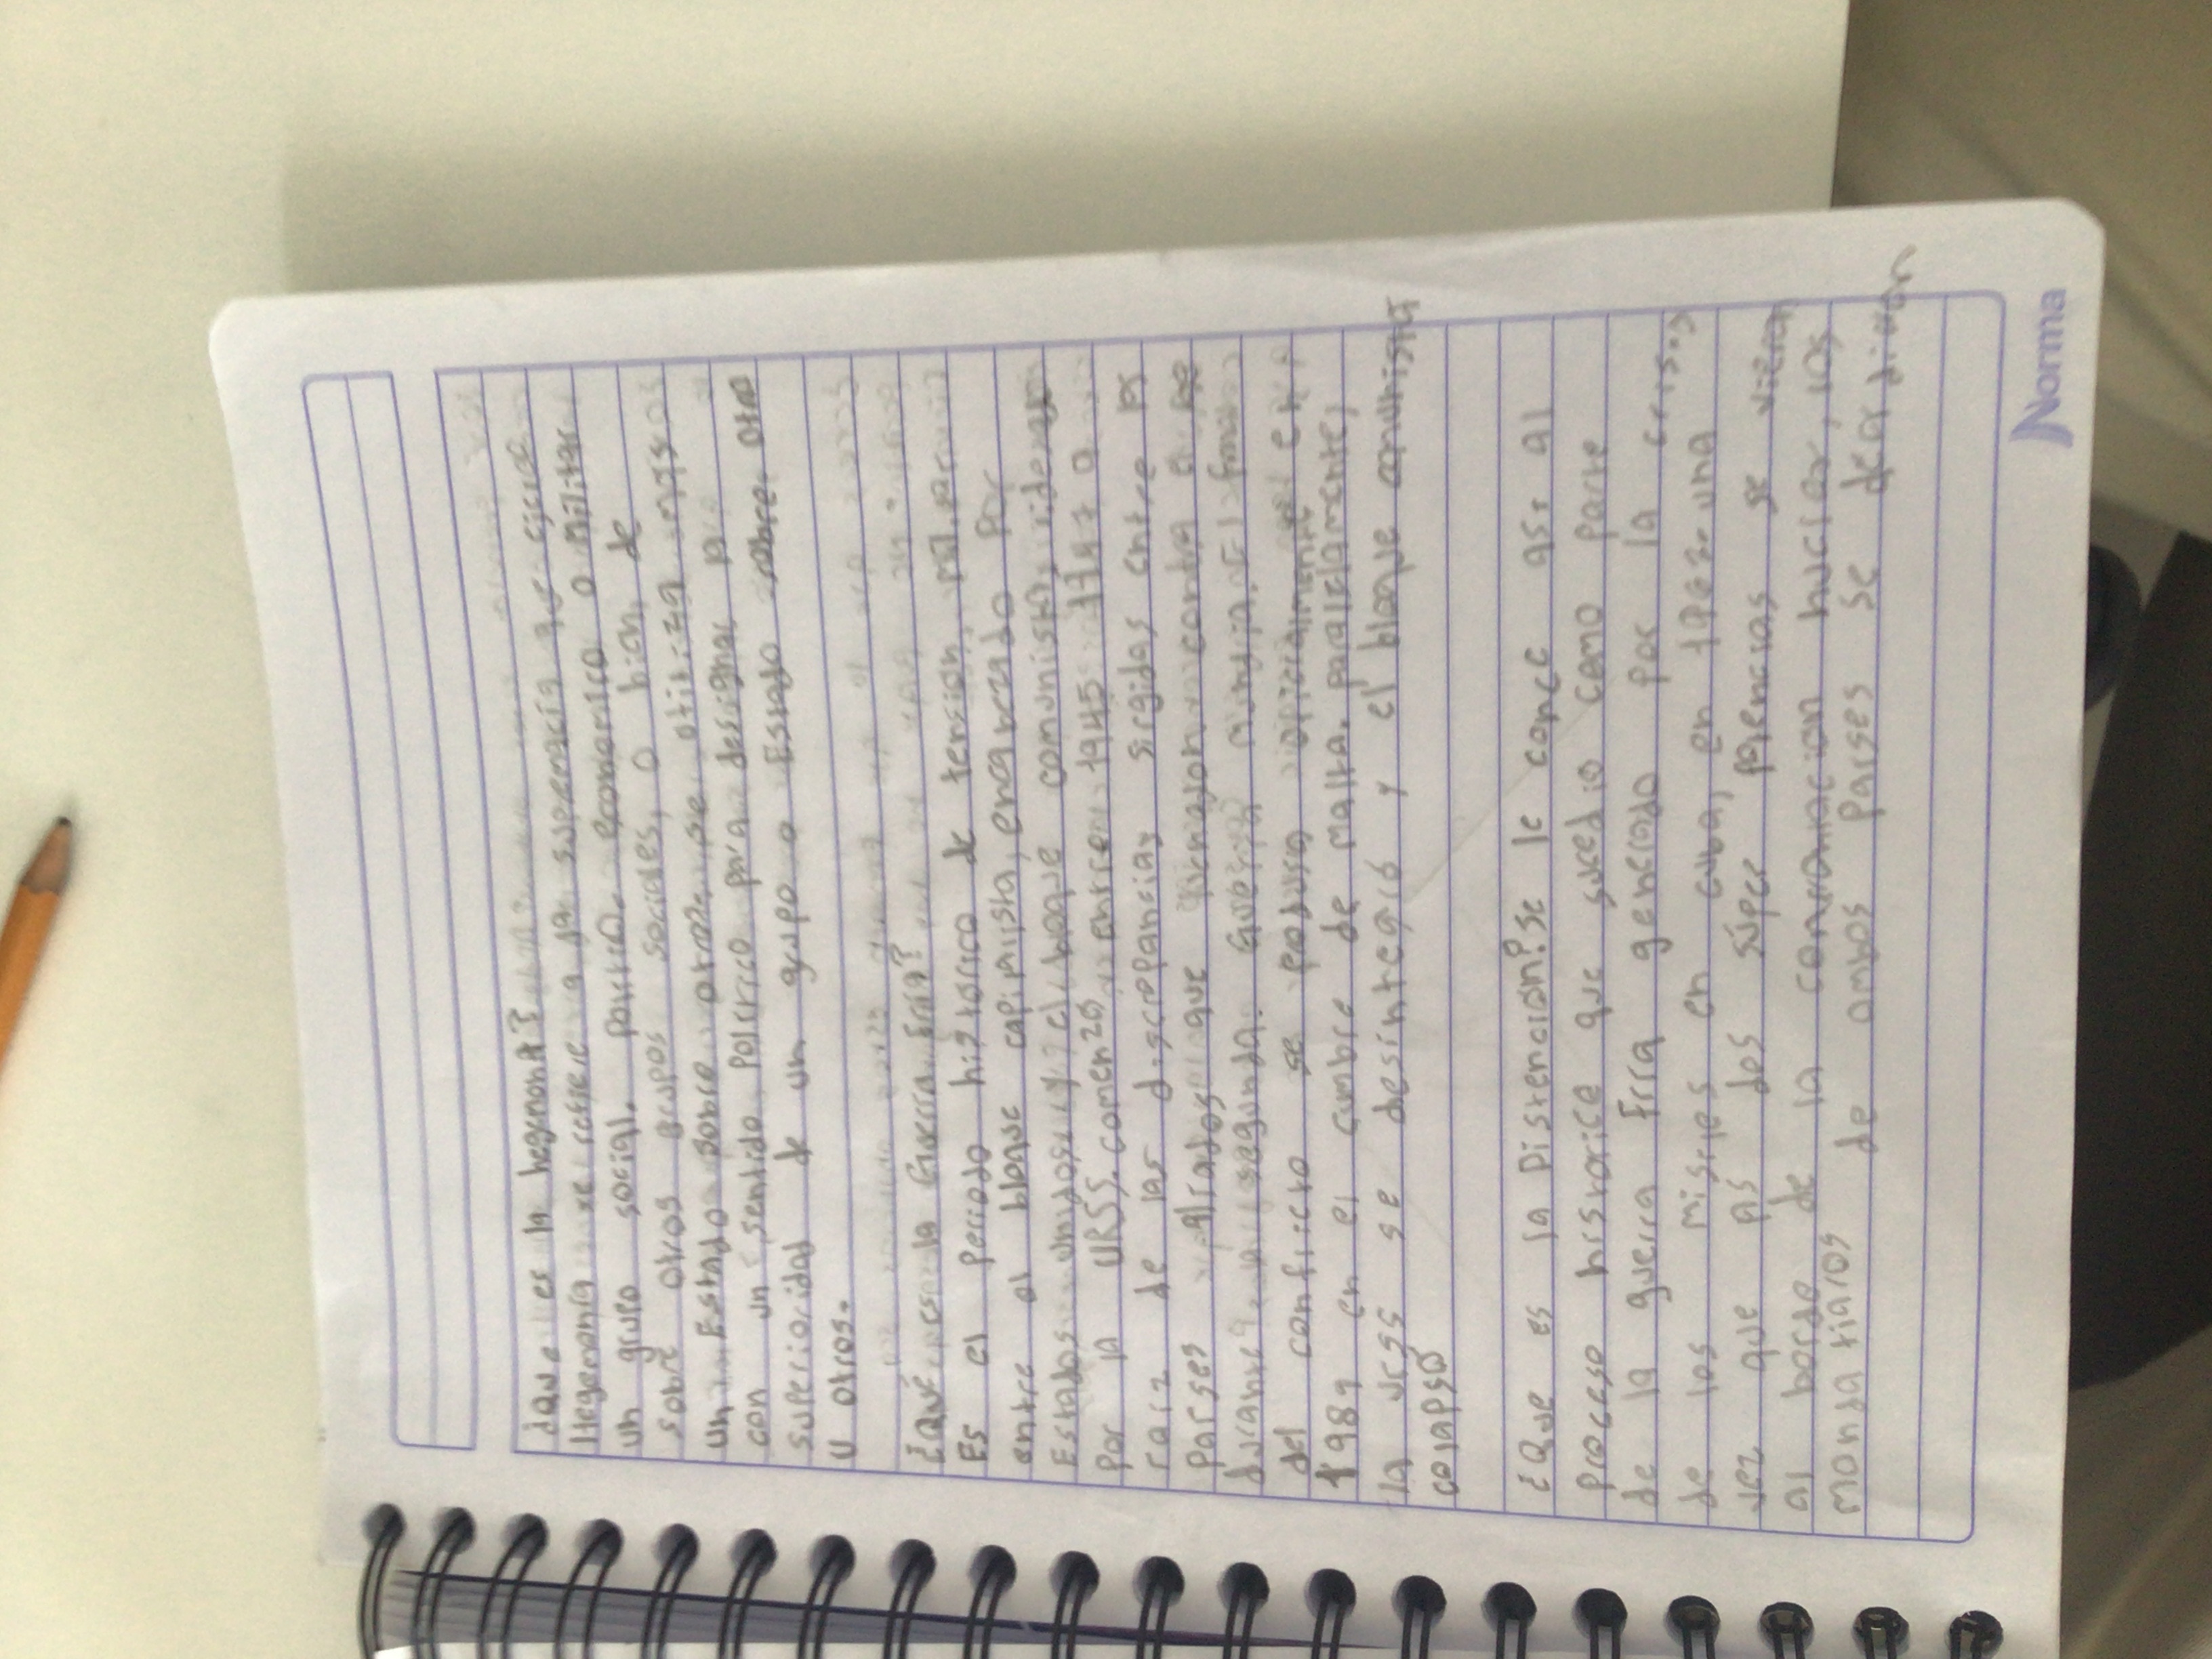 ¿Que es la hegemonía?
Hegemonía se refiere a la supremacía que ejerce
un grupo social, político, económico o militar
sobre otros grupos sociales, o bien, de
un Estado sobre otro. se utiliza mas
con un sentido político para designar la
superioridad de un grupo o Estado sobre otro
u otros.
¿Qué es la Guerra Fría?
Es el periodo histórico de tensión,
entre el bloque capitalista, encabezado por
Estados unidos y el bloque comunista, liderado
por la URSS. comenzó entre 1945 1947 a
raiz de las discrepancias srgidas entre los
países aliados que contra
durante la segunda. Guerra Mundial.
del conflicto se produjo oficialmente en
1989 en el cumbre de malta. paralelamente,
la URSS se desintegró y el bloque comunista
colapsó
¿Que es la Distención? Se le conce así al
proceso historico que sucedio como parte
de la guerra fría generado por la crisis
de los misiles en cuba, en 1962. una
vez que as dos súper potencias se vieron
al borde de la conflagración nuclear, los
mandatiaros de ambos países se deardieron
Norma